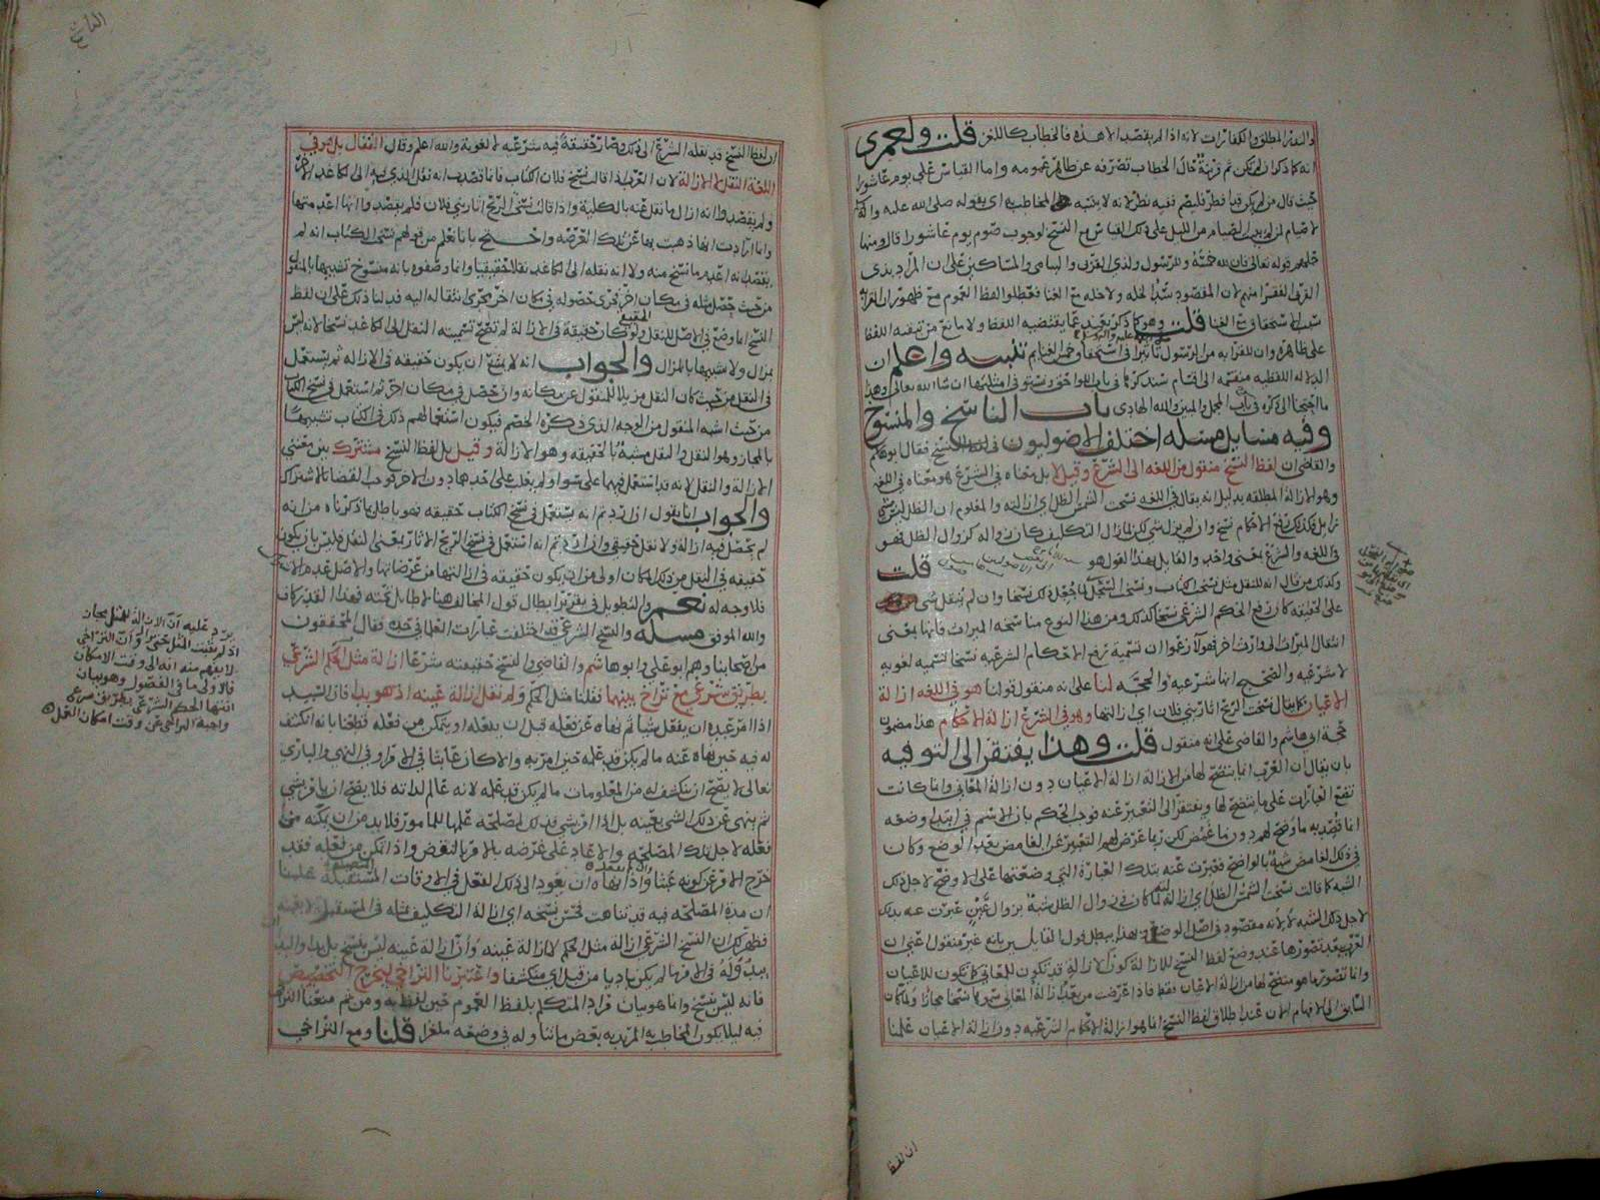 والنفر المطلق والكفارات لانه اذا لم يقصد الا هذه فالخطاب كاللغز قلت ولعمري
انه كما ذكر ان لم يكن ثم قرينة حال الخطاب تصرفه عن ظاهر عمومه واما القياس على يوم عاشورا
حيث قال من لم يكن قد افطر فليصم ففيه نظر لانه لا يشبه المخاطب به اي بقوله صلى الله عليه واله
لا صيام لمن لم يبيت الصيام من الليل على ذلك القياس مع النسخ لوجوب صوم يوم عاشورا قال ومنها
حملهم قوله تعالى فان لله خمسه وللرسول ولذي القربى واليتامى والمساكين على ان المراد بذي
القربى الفقرا منهم لان المقصود سد الخله ولا خله مع الغنا فعطلوا لفظ العموم مع ظهور ان القرابه
سبب الاستحقاق مع الغنا قلت وهو كما ذكر بعيد عما يقتضيه اللفظ ولا مانع من تبقيه اللفظ
على ظاهره وان للقرابه من الرسول تاثيرا في استحقاق خمس الغنايم تنبيه واعلم ان
الدلاله اللفظيه منقسمه الى اقسام سنذكرها في باب اللواحق ونستوفي امثلتها ان شا الله تعالى وهذا
ما احتجنا الى ذكره في باب المجمل والمبين والله الهادي باب الناسخ والمنسوخ
وفيه مسايل مسله اختلف الاصوليون في لفظ النسخ فقال ابو علي
والقاضي ان لفظ النسخ منقول من اللغه الى الشرع وقيل لا بل معناه في الشرع هو معناه في اللغه
وهو الازاله المطلقه بدليل انه يقال في اللغه نسخت الشمس الظل اي ازالته والمعلوم ان الظل ليس بشي
يزايل فكذلك نسخ الاحكام نسخ وان لم يزل شي لكن لما زال التكليف كان زواله كزوال الظل فهو
في اللغه والشرع بمعنى واحد والقايل بهذا القول هو قلت
وكذلك من قال انه للنقل مثل نسخت الكتاب
على الحقيقه كان رفع الحكم الشرعي نسخا كذلك ومن هذا النوع مناسخه الميراث فانها بمعنى
انتقال الميراث الى وارث اخر فهولا زعموا ان تسمية رفع الاحكام الشرعيه نسخا تسميه لغويه
لا شرعيه والصحيح انها شرعيه والحجه لنا على انه منقول قولنا هو في اللغه ازالة
الاعيان كما يقال نسخت الريح اثار بني فلان اي ازالتها وهو في الشرع ازالة الاحكام هذا مضمون
حجة ابي هاشم والقاضي على انه منقول قلت وهذا يفتقر الى التوفيه
بان يقال ان العرب انما يتضح لها من الازالة ازالة الاعيان دون ازالة المعاني وانما كانت
تضع العبارات على ما يتضح لها ويفتقر الى التعبير عنه فوجب الحكم بان الاسم في ابتدا وضعه
انما قصد به ما وضح لهم دون ما غمض لكن ربما عرض لهم التعبير عن الغامض بعد الوضع وكان
في ذلك الغامض شبه بالواضح فعبرت عنه بتلك العبارة التي وضعتها على الاوضح لاجل ذلك
الشبه كما قالت نسخت الشمس الظل اي ازالته لما كان في زوال الظل شبه بزوال عين عبرت عنه بذلك
لاجل ذلك الشبه لا لانه مقصود في اصل الوضع وبهذا يبطل قول القايل بانه غير منقول اعني ان
العرب عند تصورها عند وضع لفظ النسخ للازالة كون الازالة قد تكون للمعاني كما تكون للاعيان
وانما تصور ما هو متضح لها من ازالة الاعيان فقط فاذا عرضت من بعد ازالة المعاني سمي كان نسخها مجازا ولما كان
السابق الى الافهام الان عند اطلاق لفظ النسخ انما هو ازالة الاحكام الشرعيه دون ازالة الاعيان علمنا
ان لفظ
ان لفظ النسخ قد نقله الشرع الى ذلك وصار حقيقة فيه شرعيه لا لغوية والله اعلم وقال القفال بل هو في
اللغة النقل لا الازالة لان العرب اذا قالت نسخ فلان الكتاب فانما قصدت انه نقل الذي فيه الى كاغد اخر
ولم يقصدوا انه ازال ما نقل عنه بالكلية واذا قالت نسخت الريح اثار بني فلان فلم يقصدوا انها اعدمتها
وانما ارادت انها ذهبت بها عن تلك العرصه واحتج بانا نعلم من قولهم نسخت الكتاب انه لم
يقصد انه اعدم ما نسخ منه ولا انه نقله الى الكاغد نقلا حقيقيا وانما وصفوه بانه منسوخ تشبيها بالمنقول
من حيث حصل مثله في مكان اخر فجرى حصوله في مكان اخر مجرى انتقاله اليه فدلنا ذلك على ان لفظ
النسخ انما وضع في الاصل للنقل ولو كان حقيقة في الازالة لم تصح تسمية النقل الى الكاغد نسخا لانه ليس
بمزال ولا شبيها بالمزال والجواب انه لا يمتنع ان يكون حقيقه في الازاله ثم يستعمل
في النقل من حيث كان النقل مزيلا للمنقول عن مكانه وان حصل في مكان اخر ثم استعمل في نسخ الكتاب
من حيث اشبه المنقول من الوجه الذي ذكره الخصم فيكون استعمالهم ذلك في الكتاب تشبيها
بالمجاز وهو النقل والنقل مشبه بالحقيقه وهو الازالة وقيل بل لفظ النسخ مشترك بين معنيي
الازالة والنقل لانه قد استعمل فيهما على سوا ولم يغلب على احدهما دون الاخر فوجب القضا بالاشتراك
والجواب انا نقول ان اردتم انه يستعمل في نسخ الكتاب حقيقه فهو باطل بما ذكرناه من انه
لم يحصل فيه ازالة ولا نقل حقيقي وان اردتم انه استعمل في نسخ الريح الاثار بمعنى النقل فليس بان يكون
حقيقه في النقل من ذلك المكان اولى من ان يكون حقيقه في ازالتها من عرصاتها والاصل عدم الاشتراك
فلا وجه له نعم والتطويل في تقرير ابطال قول المخالف هنا لا طايل تحته فهذا القدر كاف
والله الموفق مسله والنسخ الشرعي قد اختلفت عبارات العلما في حده فقال المحققون
من اصحابنا وهم ابو علي وابو هاشم والقاضي والنسخ حقيقته شرعا ازالة مثل الحكم الشرعي
بطريق شرعي مع تراخ بينهما فقلنا مثل الحكم ولم نقل ازالة عينه اذ هو بدا فان السيد
اذا امر عبده ان يفعل شيا ثم نهاه عن فعله قبل ان يفعله او يتمكن من فعله قطعنا بانه انكشف
له فيه حين نهاه عنه ما لم يكن قد علمه حين امر به والا كان عابثا في الامر او في النهي والباري
تعالى لا يصح ان ينكشف له من المعلومات ما لم يكن قد علمه لانه عالم لذاته فلا يصح ان يامر بشي
ثم ينهى عن ذلك الشي بعينه بل اذا امر بشي فذلك لمصلحه علمها للمامور فلا بد من ان يمكنه من
فعله لاجل تلك المصلحه والا عاد على غرضه بالامر بالنقض واذا تمكن من فعله فقد
خرج الامر عن كونه عبثا واذا نهاه ان يعود الى ذلك الفعل في الاوقات المستقبلة علمنا
ان مدة المصلحه فيه قد تناهت فحسن نسخه اي ازالة التكليف بمثله في المستقبل لا بعينه
فظهر لك ان النسخ الشرعي ازالة مثل الحكم لا ازالة عينه وان ازالة عينه ليس بنسخ بل بدا والبدا
فانه ليس بنسخ وانما هو بيان مراد المتكلم بلفظ العموم حين لفظ به ومن ثم منعنا التراخي
فيه ليلا يكون المخاطب به المريد به بعض ما يتناوله في وضعه ملغزا قلنا ومع التراخي
يرد عليه ان الازالة للمثل مجاز
اذ لم يثبت المثل حتى يزال وان التراخي
لا يفهم منه انه الى وقت الامكان
فالاولى ما في الفصول وهو بيان
انتها الحكم الشرعي بطريق شرعي
واجبة التراخي عن وقت امكان العمل